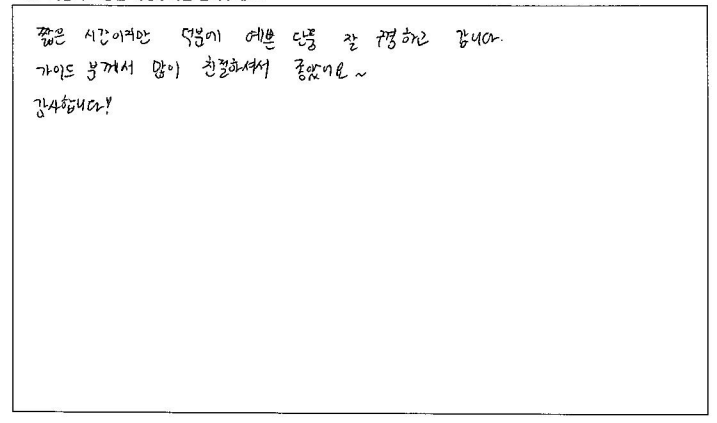 짧은 시간이지만 덕분에 예쁜 단풍 잘 구경하고 갑니다.
가이드 분께서 많이 친절하셔서 좋았어요~
감사합니다!